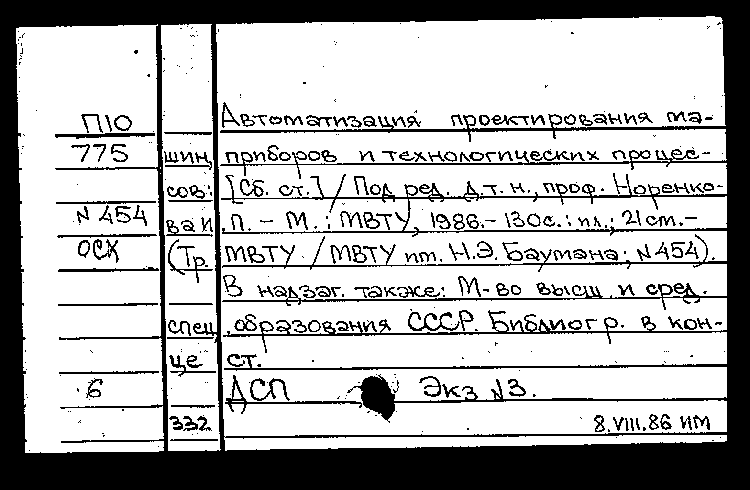 Автоматизация проектирования ма-
П10
775 шин, приборов и технологических процес-
сов: [Сб. ст.] / Под ред. д.т.н., проф. Норенко-
N 454 ва И.П. - М.: МВТУ, 1986.- 130с.: ил.; 21 см.-
ОСХ (Тр. МВТУ / МВТУ им. Н.Э. Баумана; N454).
В надзаг. также: М-во высш. и сред.
спец. образования СССР. Библиогр. в кон-
це ст.
6 ДСП Экз N3.
332 8.VIII.86 ИМ